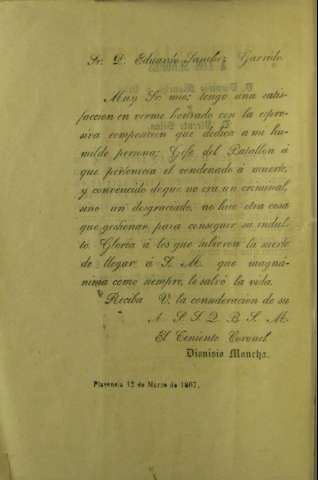 Sr. D. Eduardo Sanchez Garrido.
Muy Sr. mio: tengo una satis-
faccion en verme honrado con la espre-
siva composicion que dedica a mi hu-
milde persona; Gefe del Batallon á
que pertenecia el condenado á muerte,
y convencido de que no era un criminal,
sino un desgraciado, no hice otra cosa
que gestionar para conseguir su indul-
to. Gloria á los que tubieron la suerte
de llegar á S. M. que magná-
nima como siempre, le salvó la vida.
Reciba V. la consideracion de su
A. S. S. Q. B. S. M.
El Teniente Coronel
Dionisio Mancha.
Plasencia 12 de Marzo de